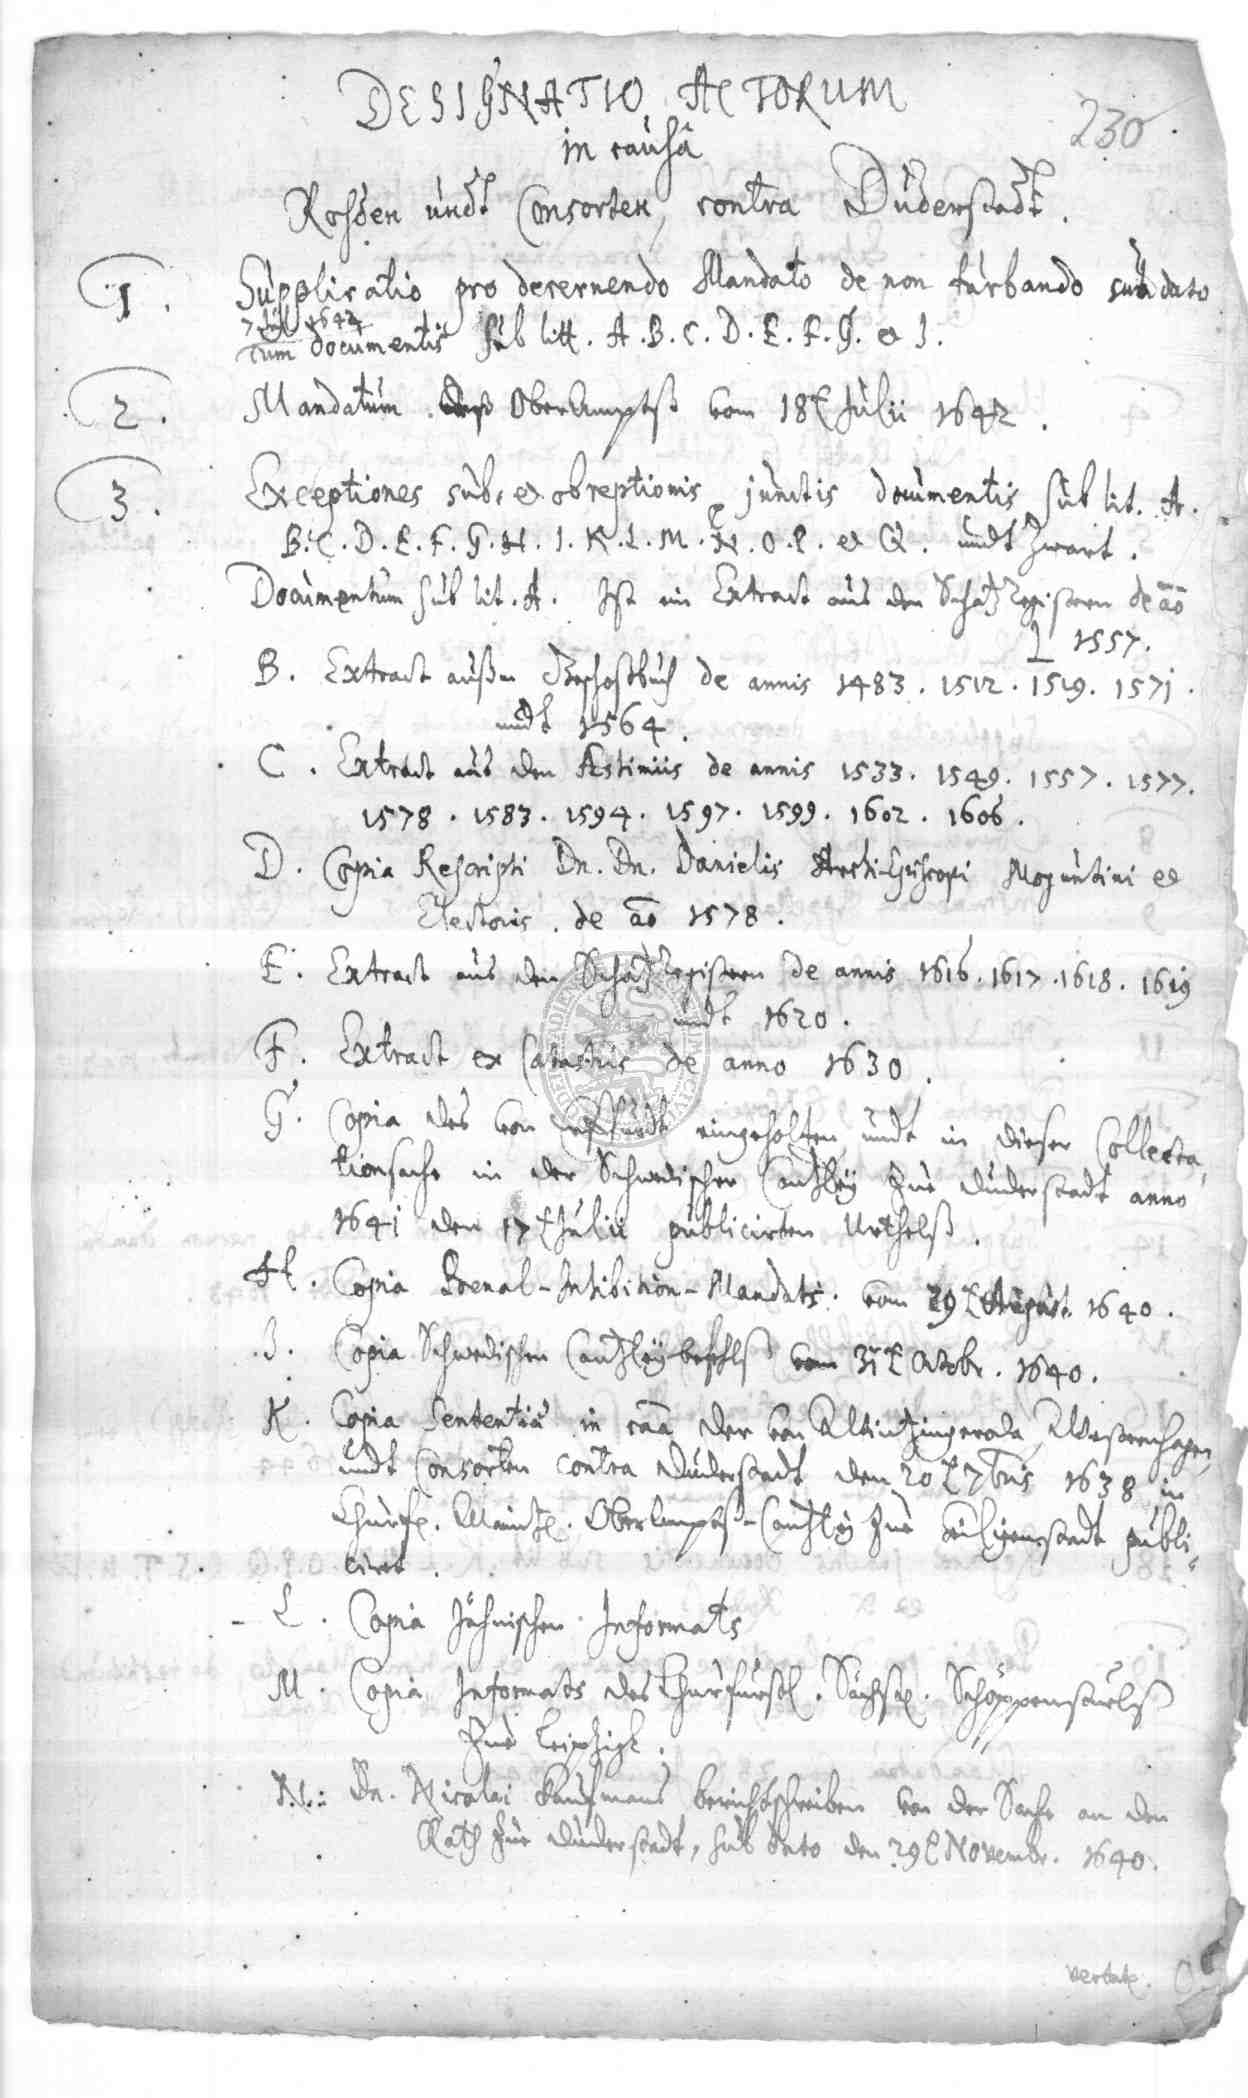 DESIGNATIO ACTORUM
230
in causâ
Rohden undt Consorten, contra Duderstadt.
1. Supplicatio pro decernendo Mandato de non turbando sub dato
7 Julii 1642
cum documentis sub litt. A. B. C. D. E. F. G. et I.
2. Mandatum deß OberAmptß vom 18t Julii 1642.
3. Exceptiones sub- et obreptionis junctis documentis sub lit. A.
B. C. D. E. F. G. H. I. K. L. M. N. O. P. et Q. undt zwart.
Documentum sub lit. A. Ist ein Extract aus den Schatz Registern de ao
1557.
B. Extract außm Geschoßbuch de annis 1483. 1512. 1519. 1571.
undt 1564.
C. Extract aus den Æstimiis de annis 1533. 1549. 1557. 1577.
1578. 1583. 1594. 1597. 1599. 1602. 1606.
D. Copia Rescripti Dn. Dn. Danielis Archi-Episcopi Moguntini et
Electoris. de ao 1578.
E. Extract aus den Schatz Registern de annis 1616. 1617. 1618. 1619
undt 1620.
F. Extract ex Catastris de anno 1630.
G. Copia des von Erffurdt eingeholten undt in dieser Collecta-
tionsache in der Schwedischen Cantzley zue Duderstadt anno
1641 den 17t Julii publicirten Urthelß.
H. Copia Poenal-Inhibition-Mandats. vom 29t August. 1640.
I. Copia Schwedischen Cantzley-befehlß vom 31t Octobr. 1640.
K. Copia Sententiæ in caa der von Wintzingeroda, Westernhagen,
undt Consorten contra Duderstadt den 20t 7bris 1638 in
Churf. Maintz. OberAmptß-Cantzley zue Heiligenstadt publi-
cirt.
L. Copia Jehnischen Informats
M. Copia Informats des Churfürstl. Sächs. Schöppenstuelß
zue Leipzigk.
N. Dn. Nicolai Kaufmans berichtschreiben von der Sache an den
Rath zue Duderstadt, sub dato den 29t Novembr. 1640.
vertatr.